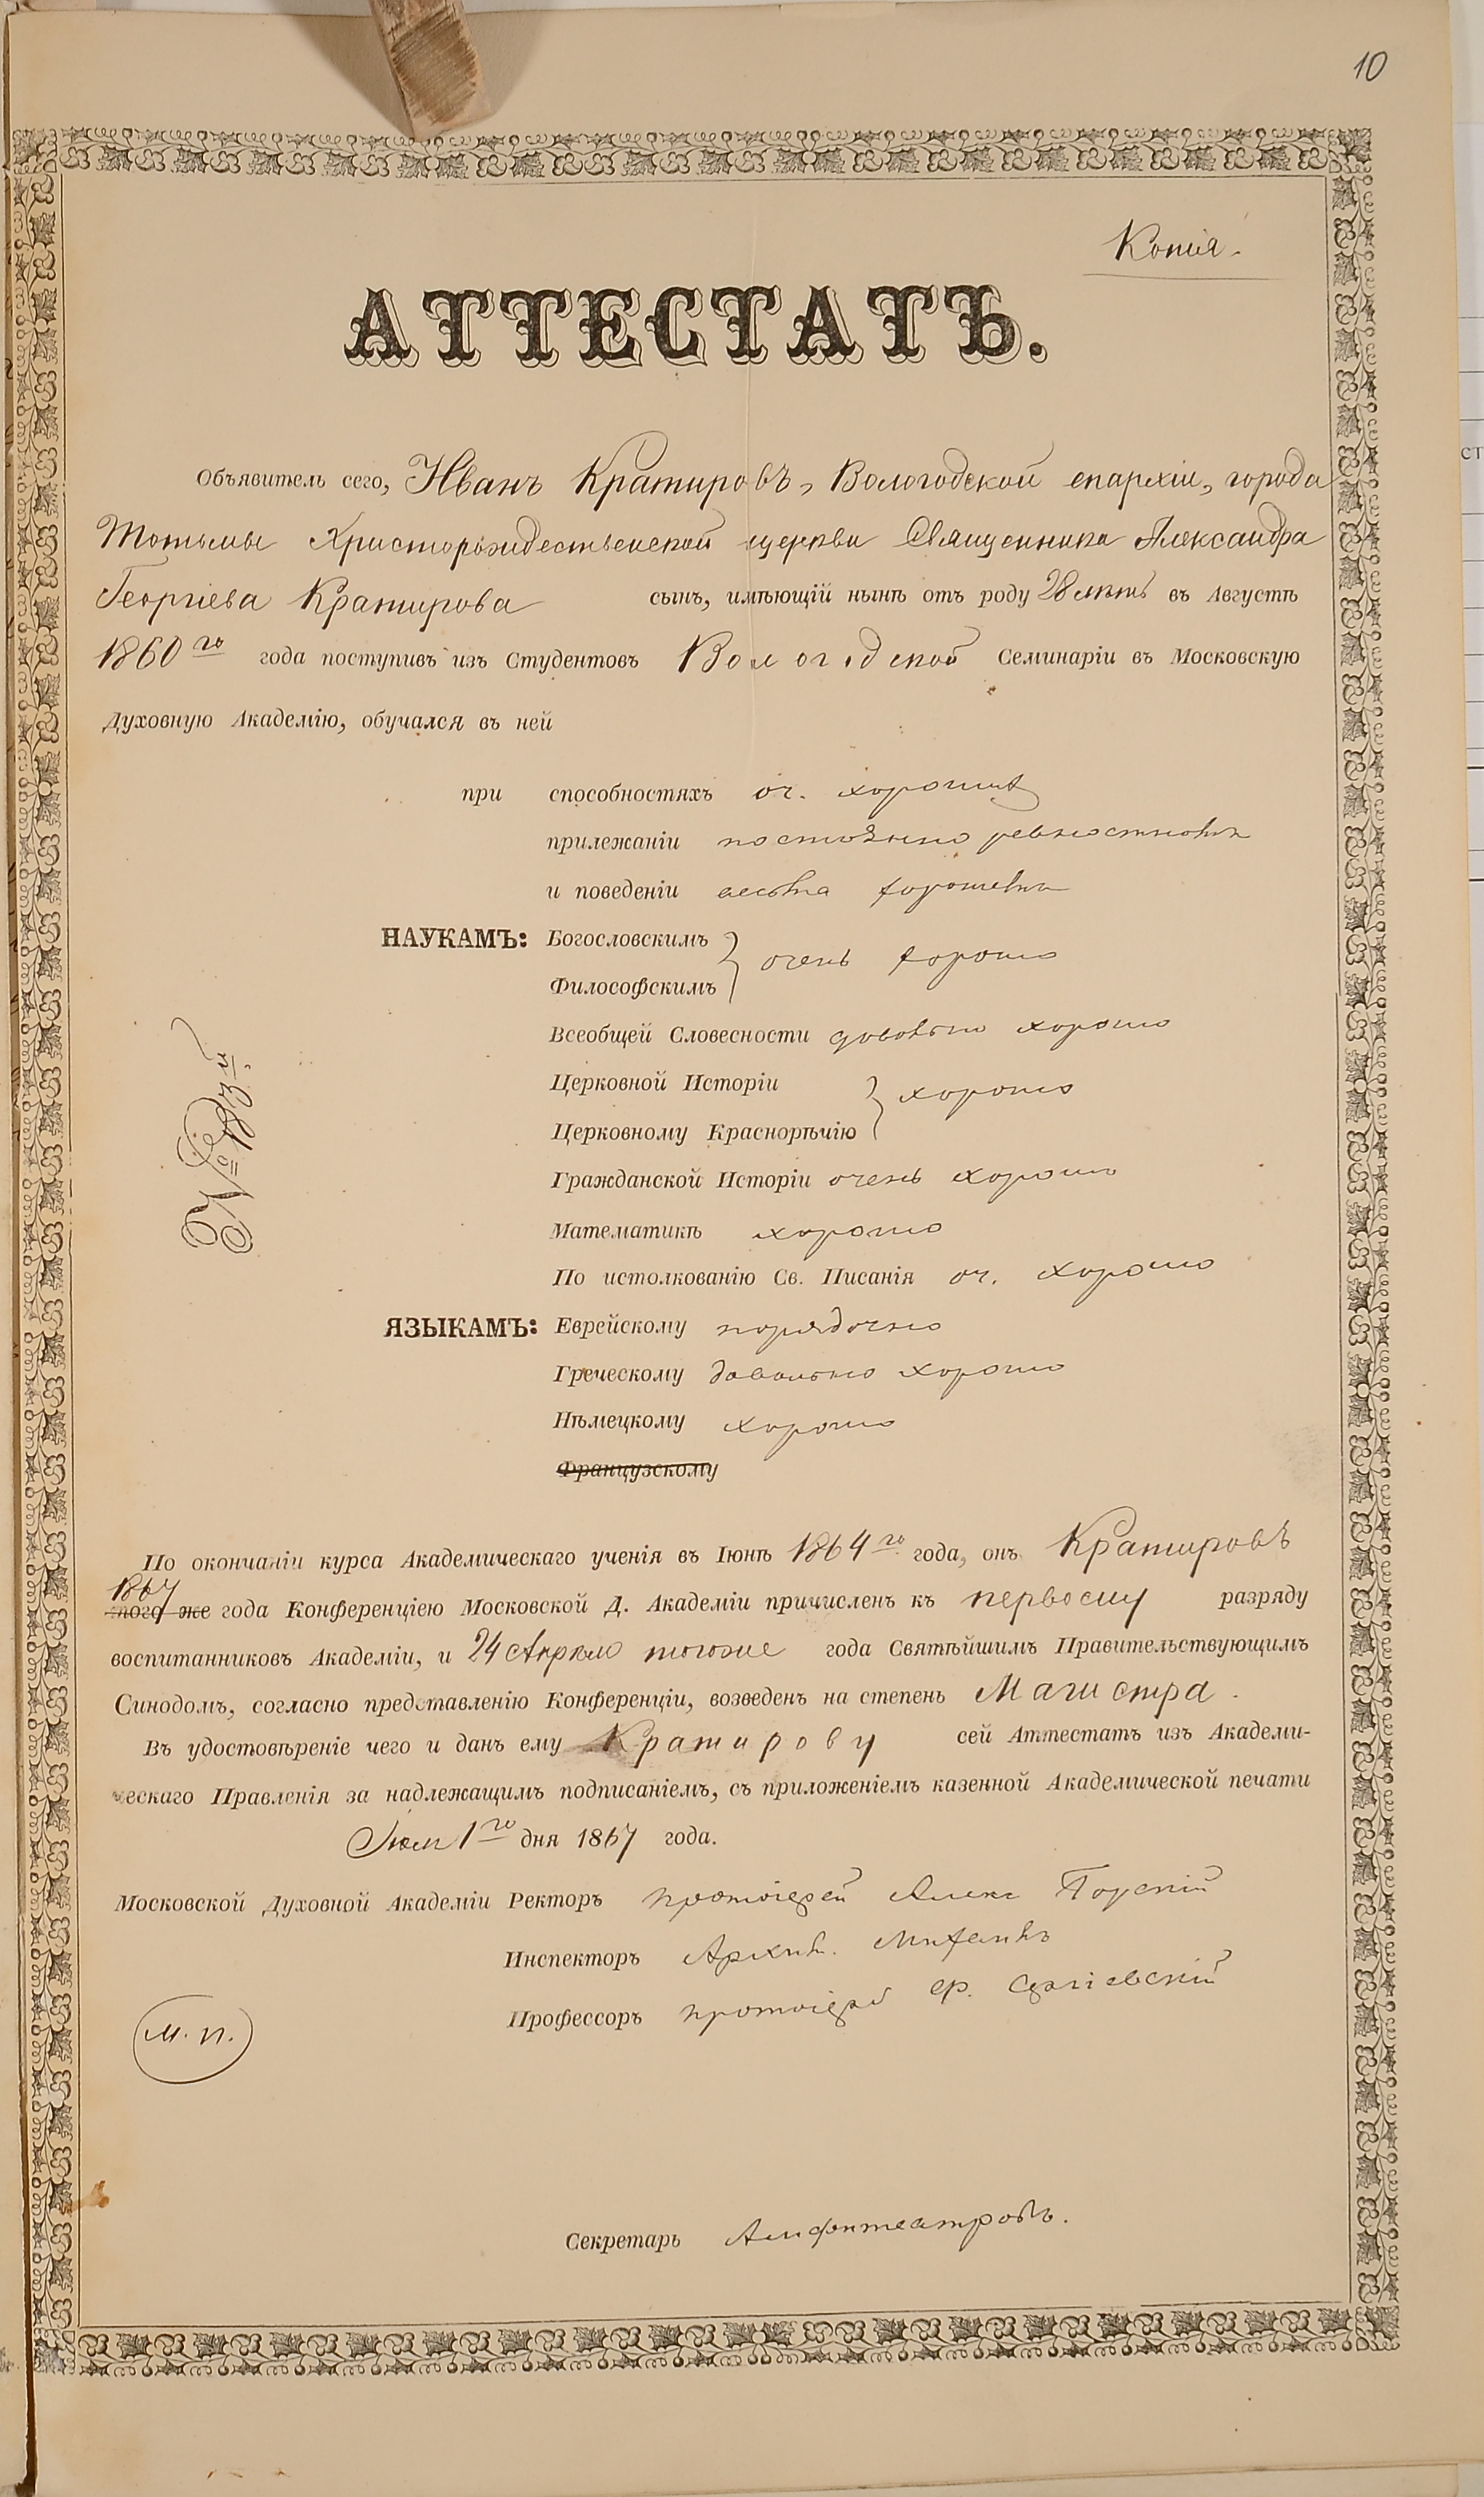 10
Копія.
АТТЕСТАТЪ.
Объявитель сего, Иванъ Кратировъ, Вологодской епархіи, города
Тотьмы Христорождественской церкви Священника Александра
Георгіева Кратирова сынъ, имѣющій нынѣ отъ роду 28 лѣтъ въ Августѣ
1860го года поступивъ изъ Студентовъ Вологодской Семинаріи въ Московскую
Духовную Академію, обучался въ ней
при способностяхъ оч. хорошихъ
прилежаніи постоянно ревностномъ
и поведеніи весьма хорошемъ
НАУКАМЪ: Богословскимъ
Философскимъ } очень хорошо
Всеобщей Словесности довольно хорошо
Церковной Исторіи
Церковному Краснорѣчію } хорошо
Гражданской Исторіи очень хорошо
Математикѣ хорошо
По истолкованію Св. Писанія оч. хорошо
ЯЗЫКАМЪ: Еврейскому порядочно
Греческому довольно хорошо
Нѣмецкому хорошо
Французскому
По окончаніи курса Академическаго ученія въ Іюнѣ 1864го года, онъ Кратировъ
1867
того же года Конференціею Московской Д. Академіи причисленъ къ первому разряду
воспитанниковъ Академіи, и 24 Апрѣля тогоже года Святѣйшимъ Правительствующимъ
Синодомъ, согласно представленію Конференціи, возведенъ на степень Магистра.
Въ удостовѣреніе чего и данъ ему Кратирову сей Аттестатъ изъ Академи-
ческаго Правленія за надлежащимъ подписаніемъ, съ приложеніемъ казенной Академической печати
1го дня 1867 года.
Московской Духовной Академіи Ректоръ протоіерей Алекс Горскій
Инспекторъ Архим. Михаилъ
Профессоръ протоіерей Сергіевскій
М. П.
Секретарь Амфитеатровъ.